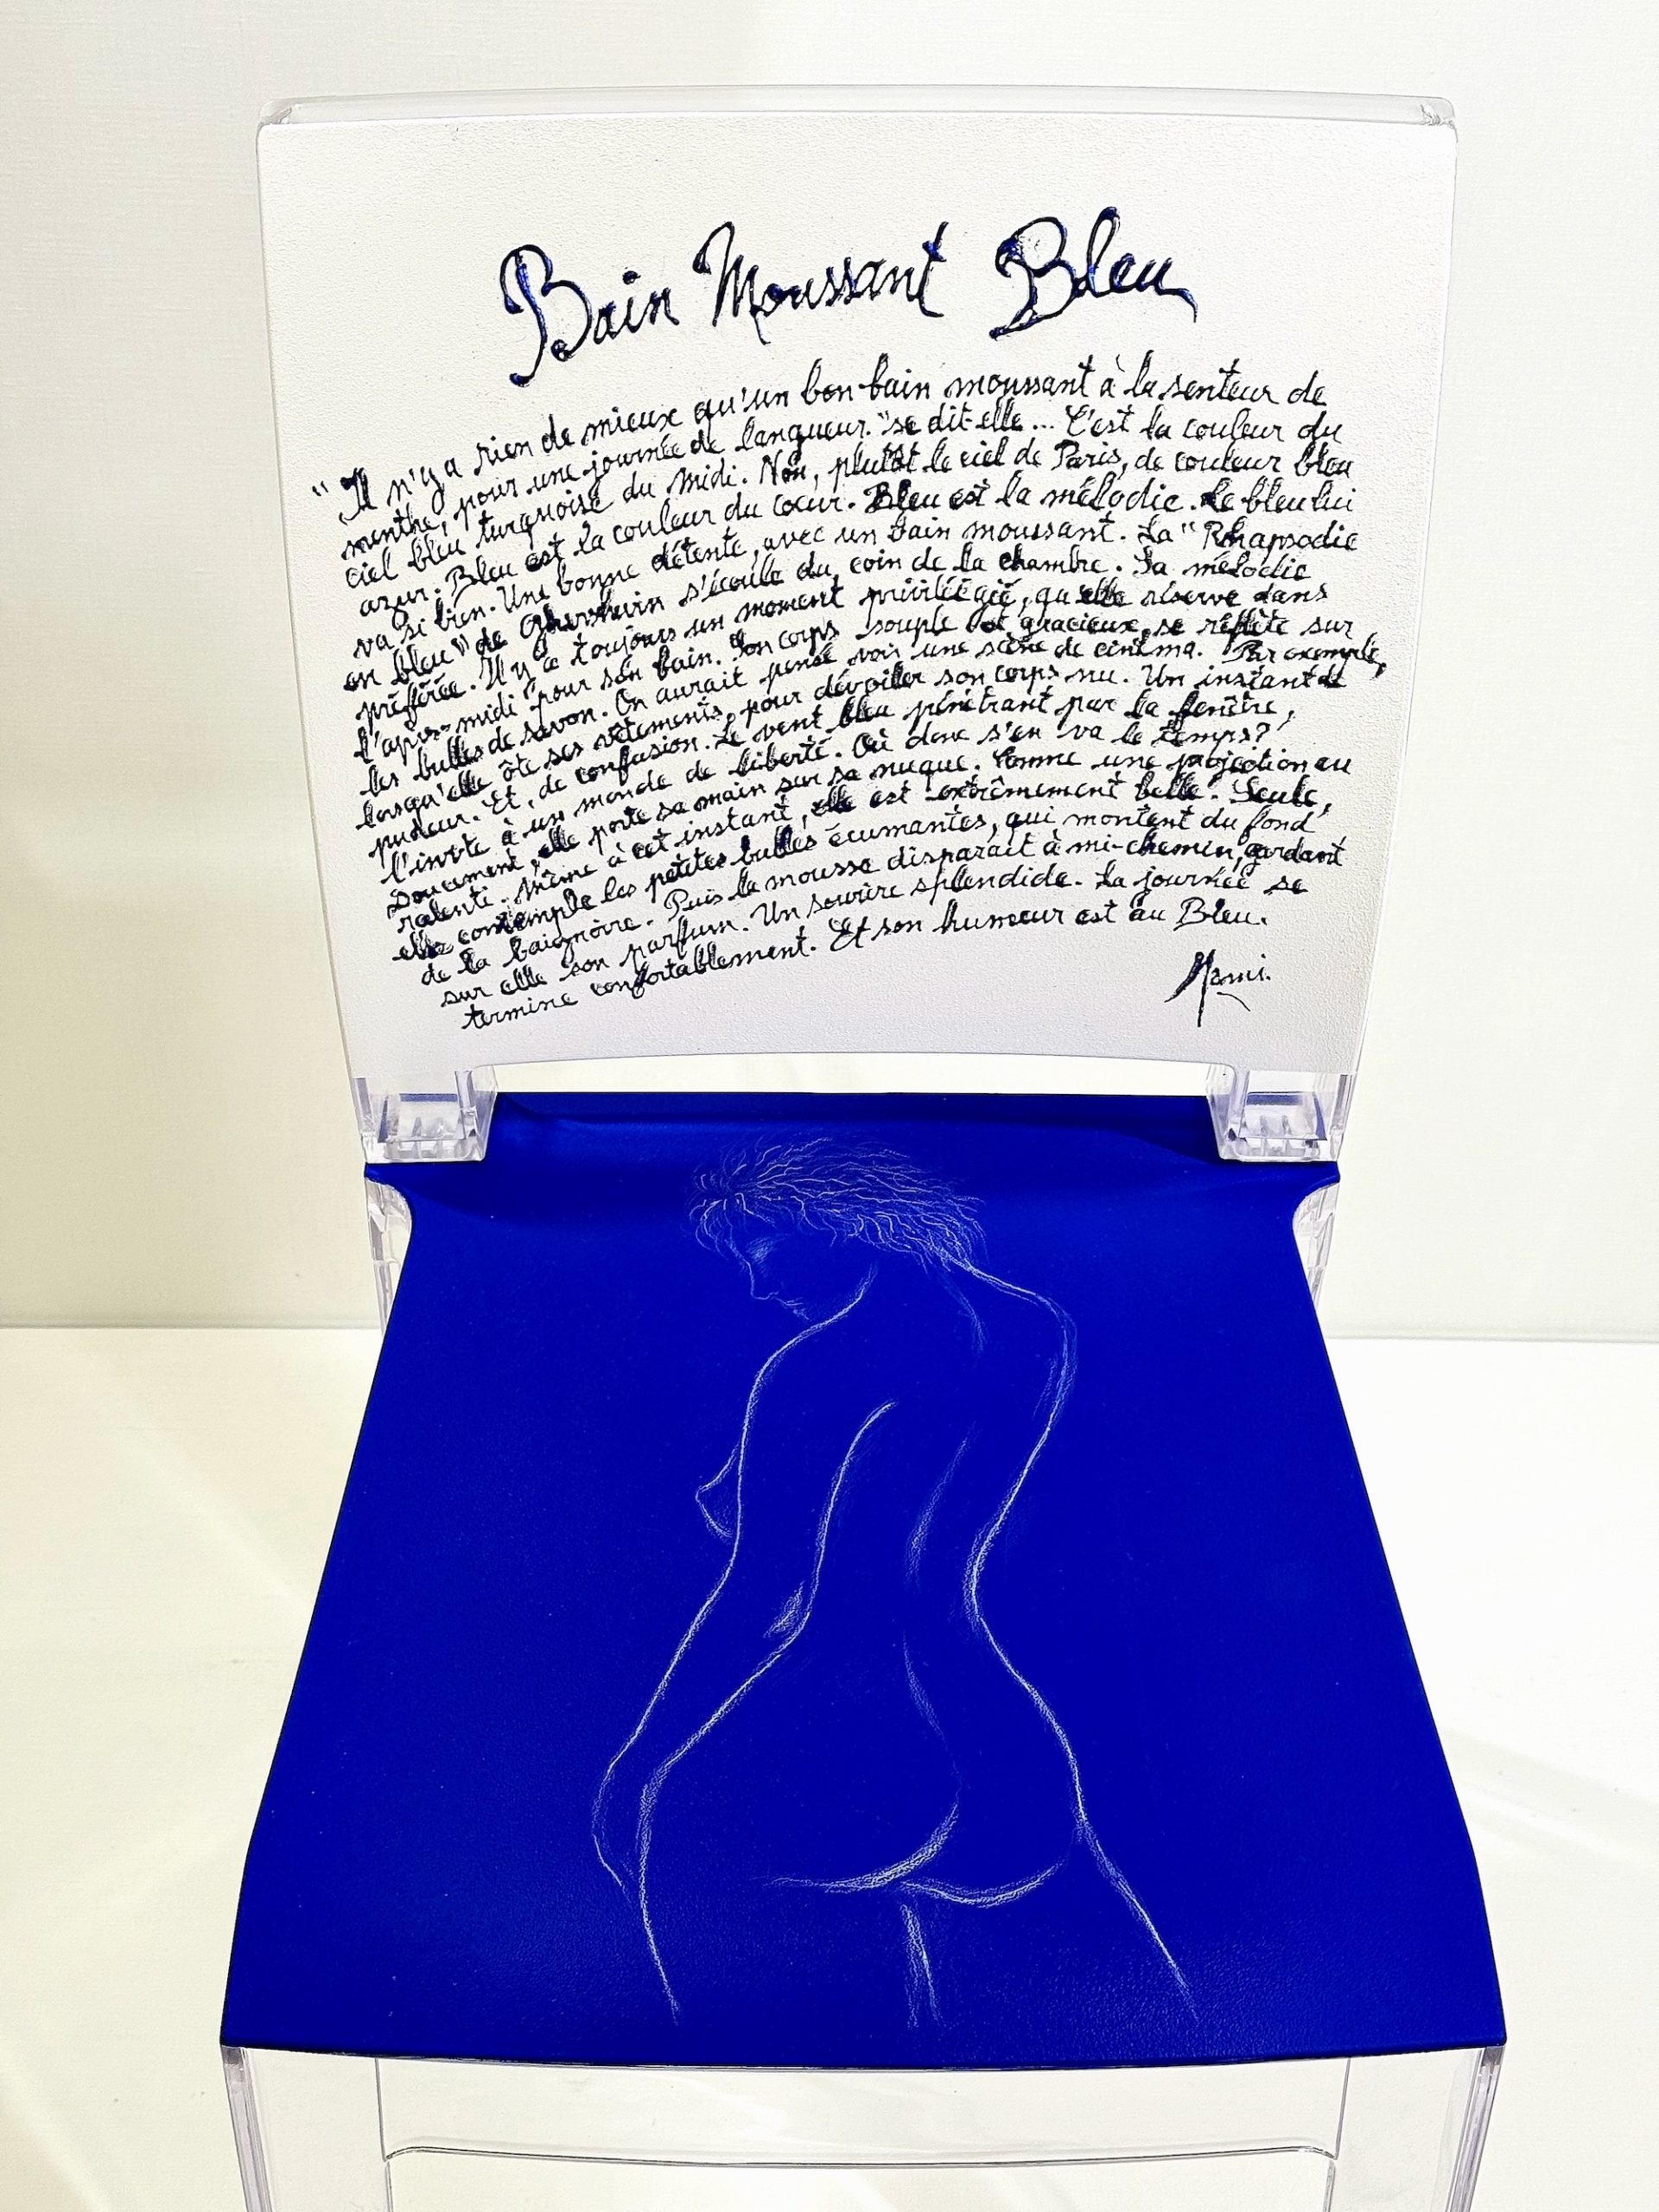 Bain Moussant Bleu
"Il n'y a rien de mieux qu'un bon bain moussant à la senteur de
menthe, pour une journée de langueur." se dit-elle... C'est la couleur du
ciel bleu turquoise du Midi. Non, plutôt le ciel de Paris, de couleur bleu
azur. Bleu est la couleur du cœur. Bleu est la mélodie. Le bleu lui
va si bien. Une bonne détente, avec un bain moussant. La "Rhapsodie
en bleu" de Ghershwin s'écoule du coin de la chambre. Sa mélodie
préférée. Il y a toujours un moment privilégié, qu'elle réserve dans
l'après-midi pour son bain. Son corps souple et gracieux, se réflète sur
les bulles de savon. On aurait pensé voir une scène de cinéma. Par exemple,
lorsqu'elle ôte ses vêtements, pour dévoiler son corps nu. Un instant de
pudeur. Et, de confusion. Le vent bleu pénétrant par la fenêtre,
l'invite à un monde de liberté. Où donc s'en va le temps?
Doucement, elle porte sa main sur sa nuque. Comme une projection au
ralenti. Même à cet instant, elle est extrêmement belle. Seule,
elle contemple les petites bulles écumantes, qui montent du fond
de la baignoire. Puis la mousse disparait à mi-chemin, gardant
sur elle son parfum. Un sourire splendide. La journée se
termine confortablement. Et son humeur est au Bleu.